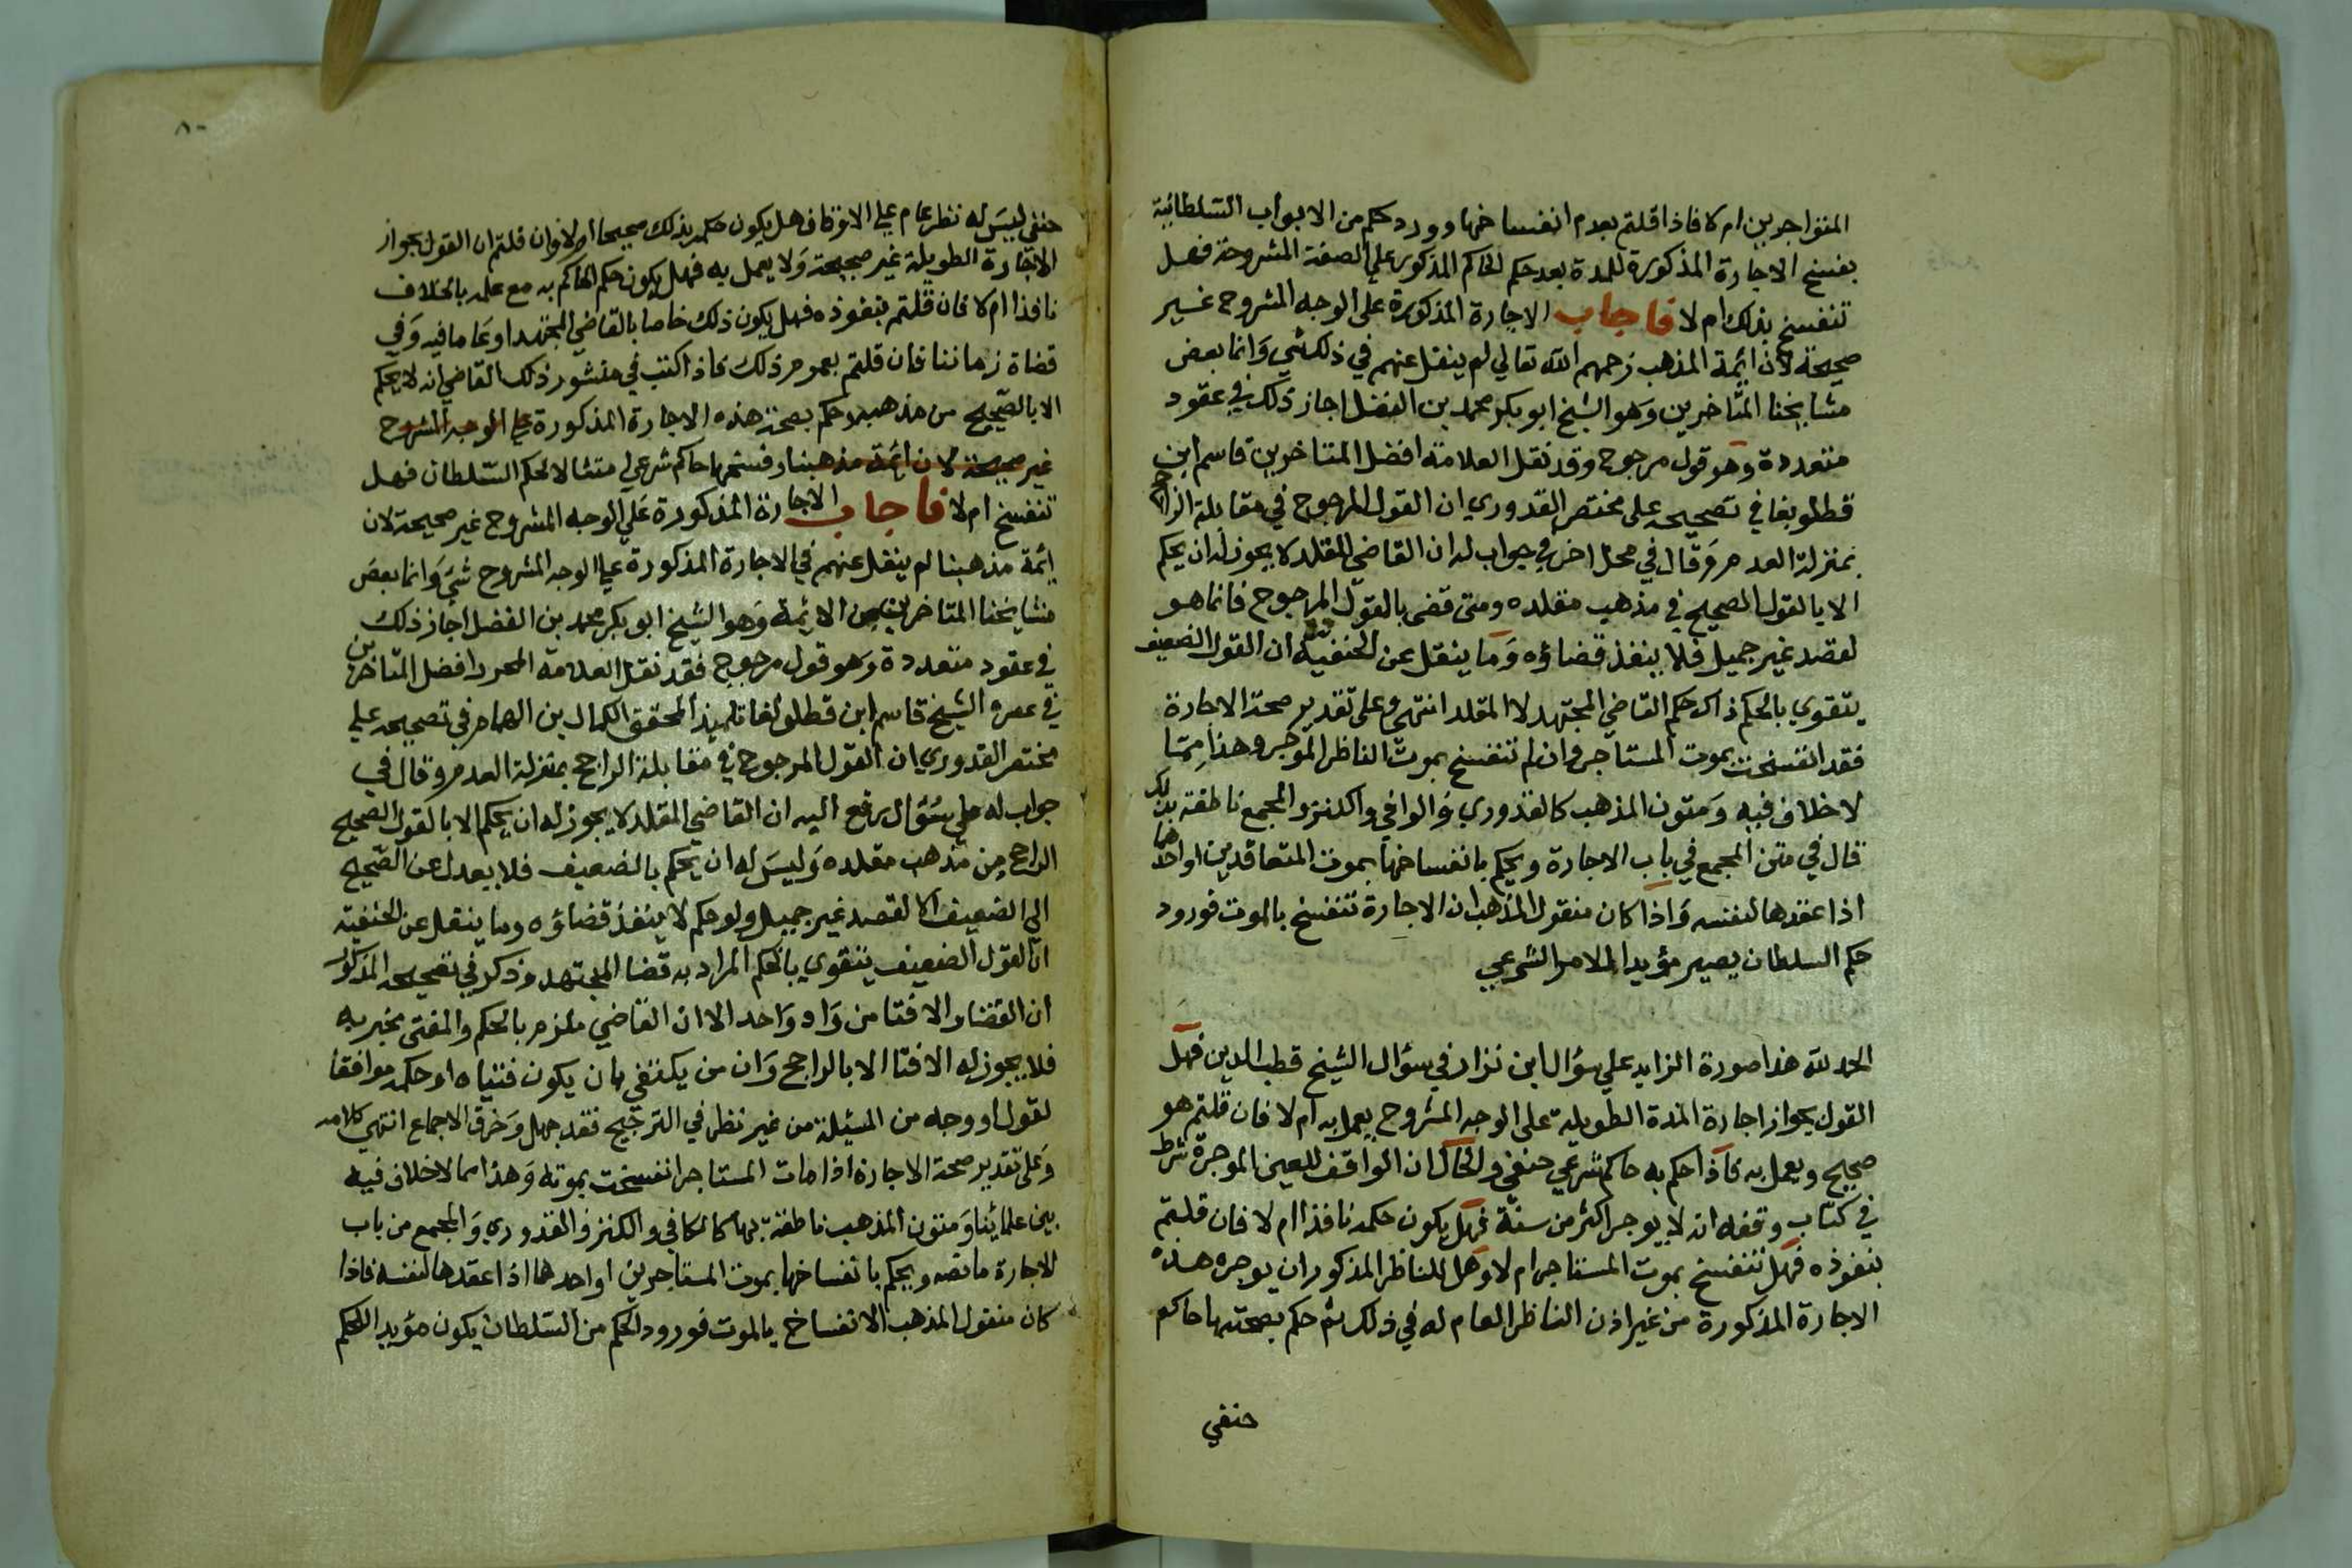 المتواجرين ام لا فاذا قلتم بعدم انفساخها وورد حكم من الابواب السلطانية
بفسخ الاجارة المذكورة للمدة بعد حكم الحاكم المذكور على الصفة المشروحة فهل
تنفسخ بذلك ام لا فاجاب الاجارة المذكورة على الوجه المشروح غير
صحيحة لان ائمة المذهب رحمهم الله تعالي لم ينقل عنهم في ذلك شي وانما بعض
مشايخنا المتاخرين وهو الشيخ ابو بكر محمد بن الفضل اجاز ذلك في عقود
متعددة وهو قول مرجوح وقد نقل العلامة افضل المتاخرين قاسم ابن
قطلوبغا في تصحيحه على مختصر القدوري ان القول المرجوح في مقابلة الراجح
بمنزلة العدم وقال في محل اخر في جواب له ان القاضي المقلد لا يجوز له ان يحكم
الا بالقول الصحيح في مذهب مقلده ومتى قضى بالقول المرجوح فانما هو
لقصد غير جميل فلا ينفذ قضاؤه وما ينقل عن الحنفية ان القول الضعيف
يتقوي بالحكم ذاك حكم القاضي المجتهد لا المقلد انتهى وعلى تقدير صحة الاجارة
فقد انفسخت بموت المستاجر وان لم تنفسخ بموت الناظر الموجر وهذا مما
لا خلاف فيه ومتون المذهب كالقدوري والوافي والكنز والمجمع ناطقة بذلك
قال في متن المجمع في باب الاجارة ويحكم بانفساخها بموت المتعاقدين او احدهما
اذا عقدها لنفسه واذا كان منقول المذهب ان الاجارة تنفسخ بالموت فورود
حكم السلطان يصير مؤيدا للامر الشرعي
الحمد لله هذا صورة الزايد علي سؤال ابن نزار في سؤال الشيخ قطب الدين فهل
القول بجواز اجارة المدة الطويلة على الوجه المشروح يعمل به ام لا فان قلتم هو
صحيح ويعمل به فاذا حكم به حاكم شرعي حنفي والحال ان الواقف للعين الموجرة شرط
في كتاب وقفه انه لا يوجر اكثر من سنة فهل يكون حكمه نافذا ام لا فان قلتم
بنفوذه فهل تنفسخ بموت المستاجر ام لا وهل للناظر المذكور ان يوجر هذه
الاجارة المذكورة من غير اذن الناظر العام له في ذلك ثم حكم بصحتها حاكم
حنفي
٨٠
حنفي ليس له نظر عام علي الاوقاف هل يكون حكمه بذلك صحيحا ام لا وان قلتم ان القول بجواز
الاجارة الطويلة غير صحيحة ولا يعمل به فهل يكون حكم الحاكم به مع علمه بالخلاف
نافذا ام لا فان قلتم بنفوذه فهل يكون ذلك خاصا بالقاضي المجتهد او عاما فيه وفي
قضاة زماننا فان قلتم بعموم ذلك فاذا كتب في منشور ذلك القاضي انه لا يحكم
الا بالصحيح من مذهبه وحكم بصحة هذه الاجارة المذكورة علي الوجه المشروح
غير صحيحة لان ائمة مذهبنا وفسخها حاكم شرعي امتثالا لحكم السلطان فهل
تنفسخ ام لا فاجاب الاجارة المذكورة علي الوجه المشروح غير صحيحة لان
ائمة مذهبنا لم ينقل عنهم في الاجارة المذكورة علي الوجه المشروح شي وانما بعض
مشايخنا المتاخرين من الائمة وهو الشيخ ابو بكر محمد بن الفضل اجاز ذلك
في عقود متعددة وهو قول مرجوح فقد نقل العلامة المحرر افضل المتاخرين
في عصره الشيخ قاسم ابن قطلوبغا تلميذ المحقق الكمال بن الهمام في تصحيحه علي
مختصر القدوري ان القول المرجوح في مقابلة الراجح بمنزلة العدم وقال في
جواب له علي سؤال رفع اليه ان القاضي المقلد لا يجوز له ان يحكم الا بالقول الصحيح
الراجح من مذهب مقلده وليس له ان يحكم بالضعيف فلا يعدل عن الصحيح
الي الضعيف الا لقصد غير جميل ولو حكم لا ينفذ قضاؤه وما ينقل عن الحنفية
ان القول الضعيف يتقوي بالحكم المراد به قضا المجتهد وذكر في تصحيحه المذكور
ان القضا والافتا من واد واحد الا ان القاضي ملزم بالحكم والمفتى مخبر به
فلا يجوز له الافتا الا بالراجح وان من يكتفي بان يكون فتياه او حكمه موافقا
لقول او وجه من المسئلة من غير نظر في الترجيح فقد جهل وخرق الاجماع انتهي كلامه
وعلى تقدير صحة الاجارة اذا مات المستاجر انفسخت بموته وهذا مما لا خلاف فيه
بين علمائنا ومتون المذهب ناطقة بها كالكافي والكنز والقدوري والمجمع من باب
الاجارة ما نصه ويحكم بانفساخها بموت المستاجرين او احدهما اذا عقدها لنفسه فاذا
كان منقول المذهب الانفساخ بالموت فورود الحكم من السلطان يكون مؤيدا للحكم